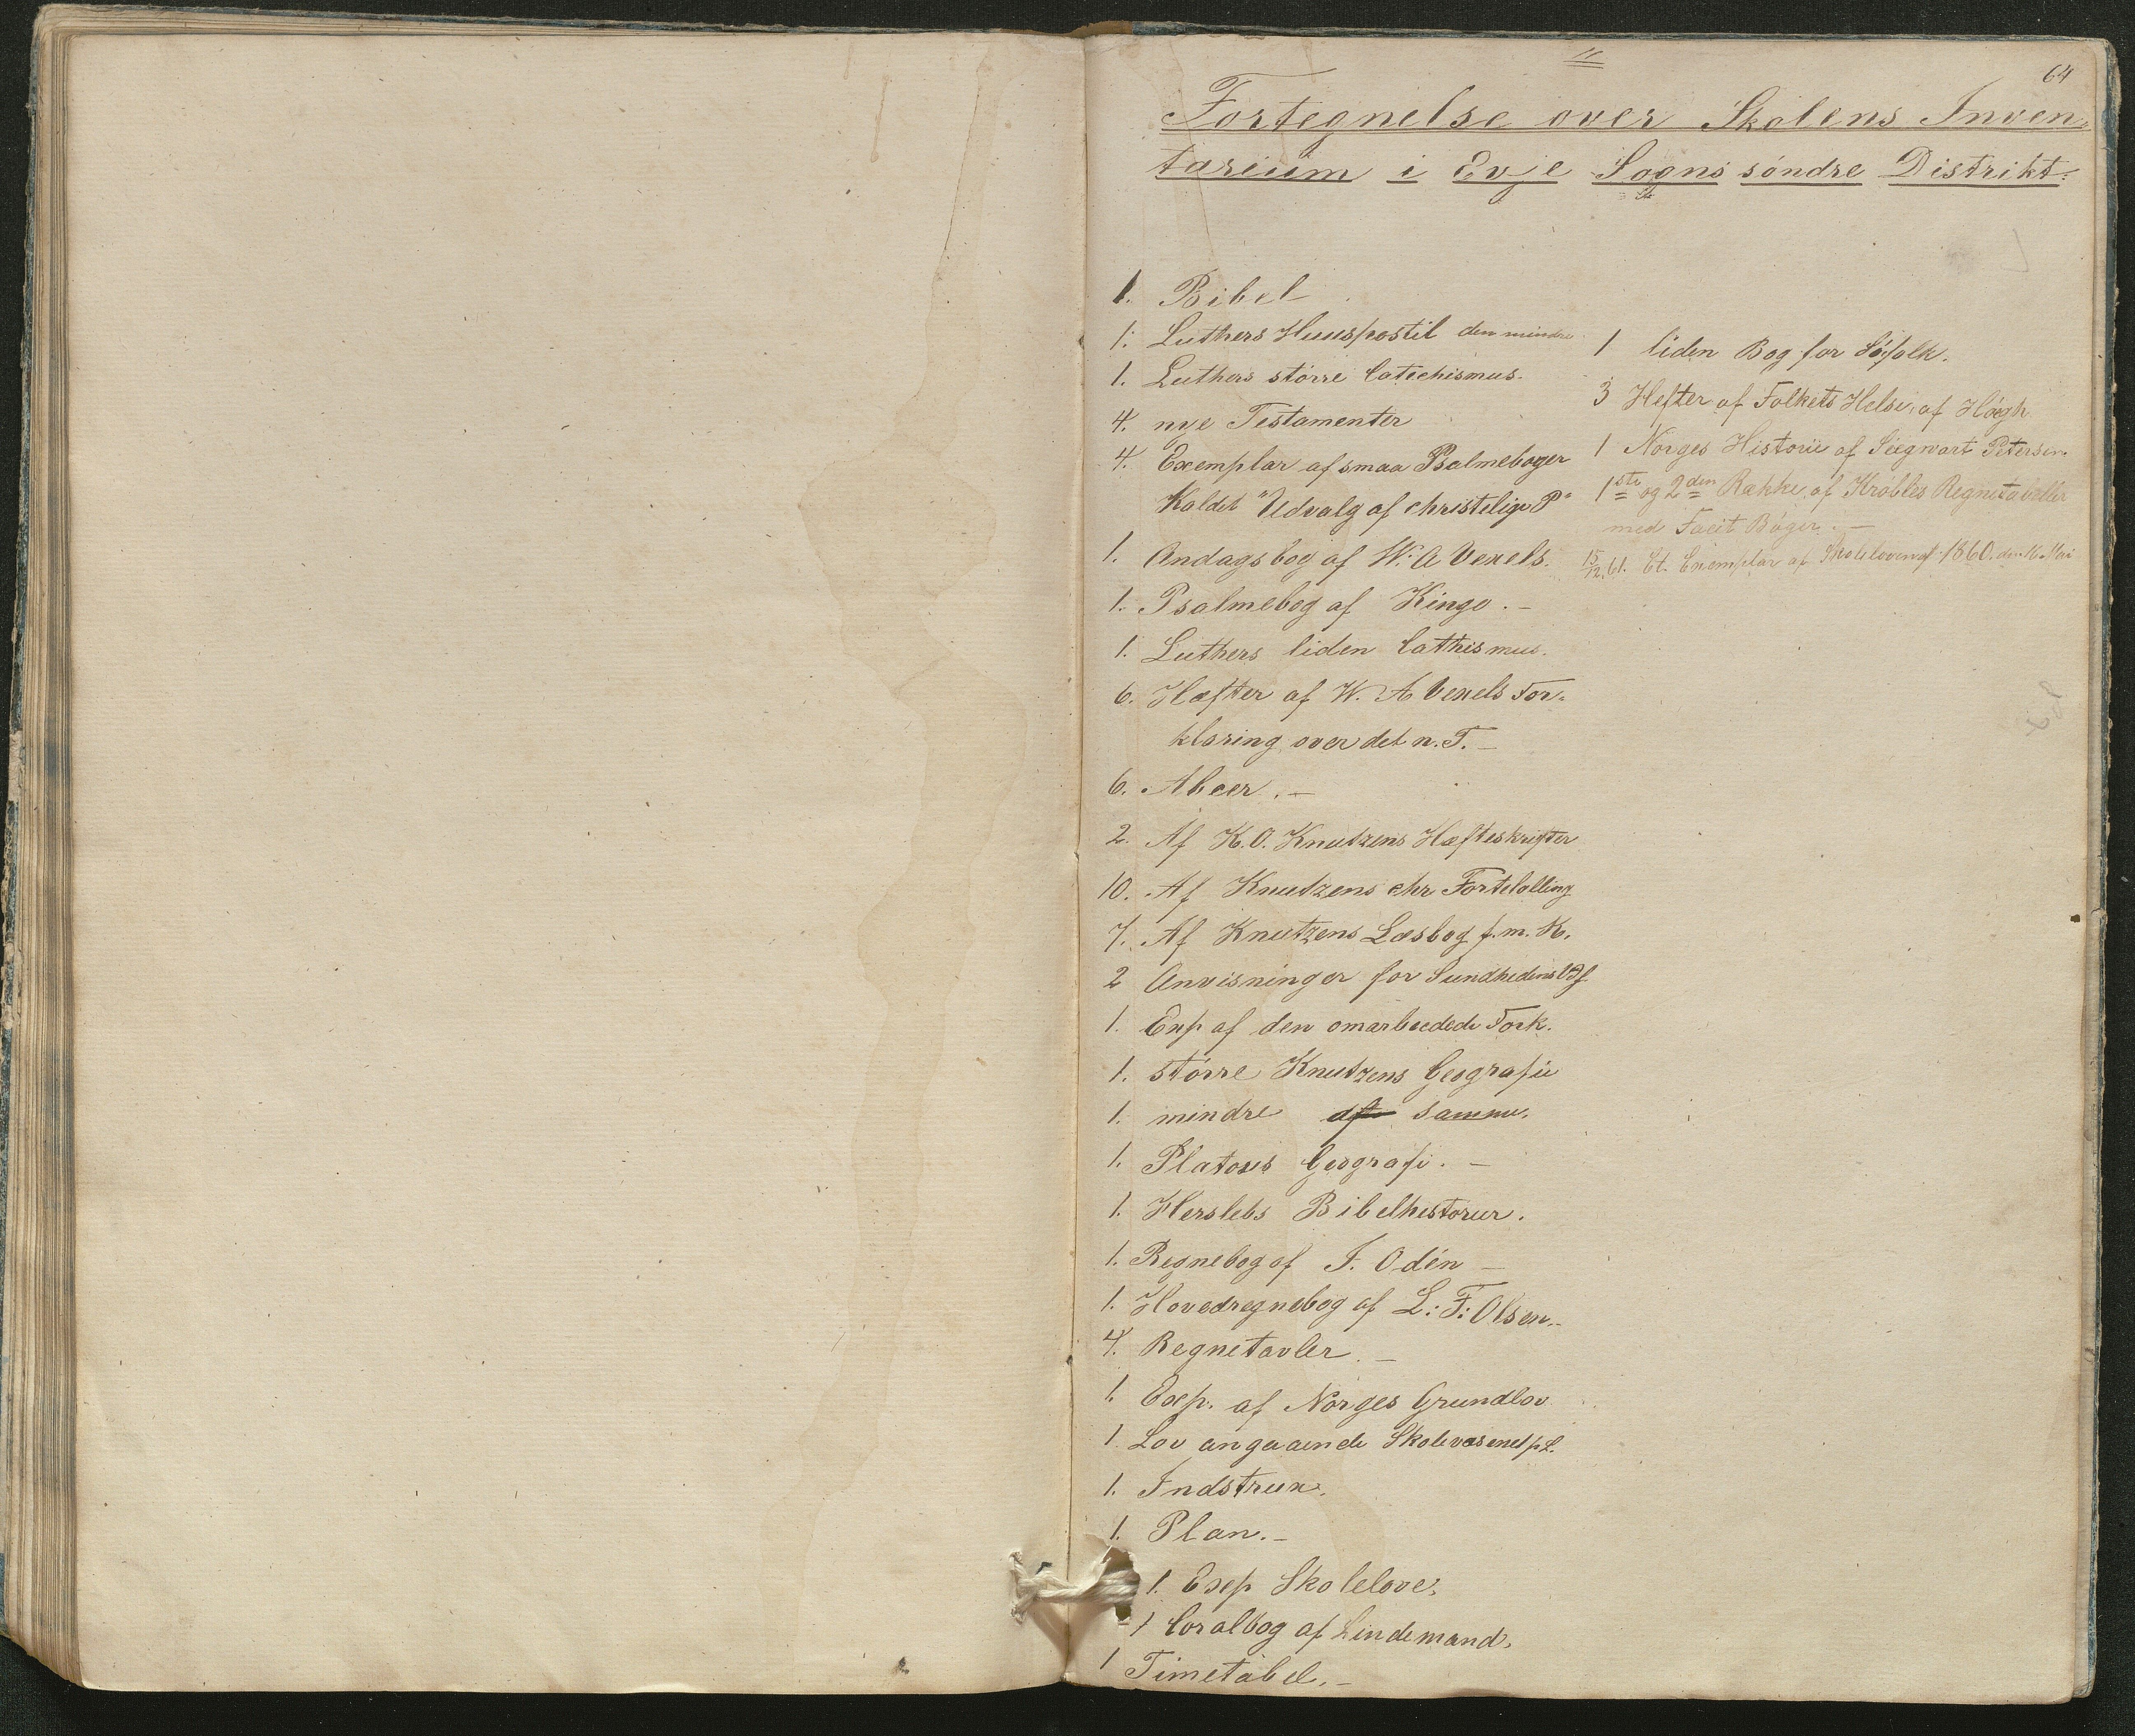 64
Fortegnelse over Skolens Inven-
tarium i Evje Sogns söndre Distrikt.
1. Bibel
1. Luthers Huuspostil den mindre
1. Luthers större Catechismus.
4. nye Testamenter
4. Exemplar af smaa Psalmebøger
Kaldet "Udvalg af christelige P"
1. Andagsbog af W. A Vexels.
1. Psalmebog af Kingo. -
1. Luthers liden Cathismus.
6. Hæfter af W. A Vexels For-
klaring over det n. T. -
6. Abcer. -
2. Af K. O. Knutzens Hæfteskrifter
10. Af Knutzens chr Fortelalling
7. Af Knutzens Læsbog f. m. K.
2 Anvisninger for Sundhedens
1. Exp af den omarbeedede Fork.
1. större Knutzens Geografie
1. mindre samme.
1. Platous Geografi. -
1. Herslebs Bibelhistorier.
1. Regnebog af F. Odén -
1. Hovedregnebog af L: F: Olsen. -
4. Regnetavler. -
1. Exp. af Norges Grundlov
1 Lov angaaende Skolevæsenet p L.
1. Indstrux.
1. Plan. -
1. Exp Skolelove.
1 Coralbog af Lindemand.
1 Timetabel. -
1 liden Bog for Söfolk.
3 Hefter af Folkets Helse, af Høegh.
1 Norges Historie af Siegwart Petersen.
1ste og 2den Række af Kröbles Regnetabeller
med Facit Böger. -
15/12. 61. Et. Exemplar af Skoleloven af 1860. den 16 Mai